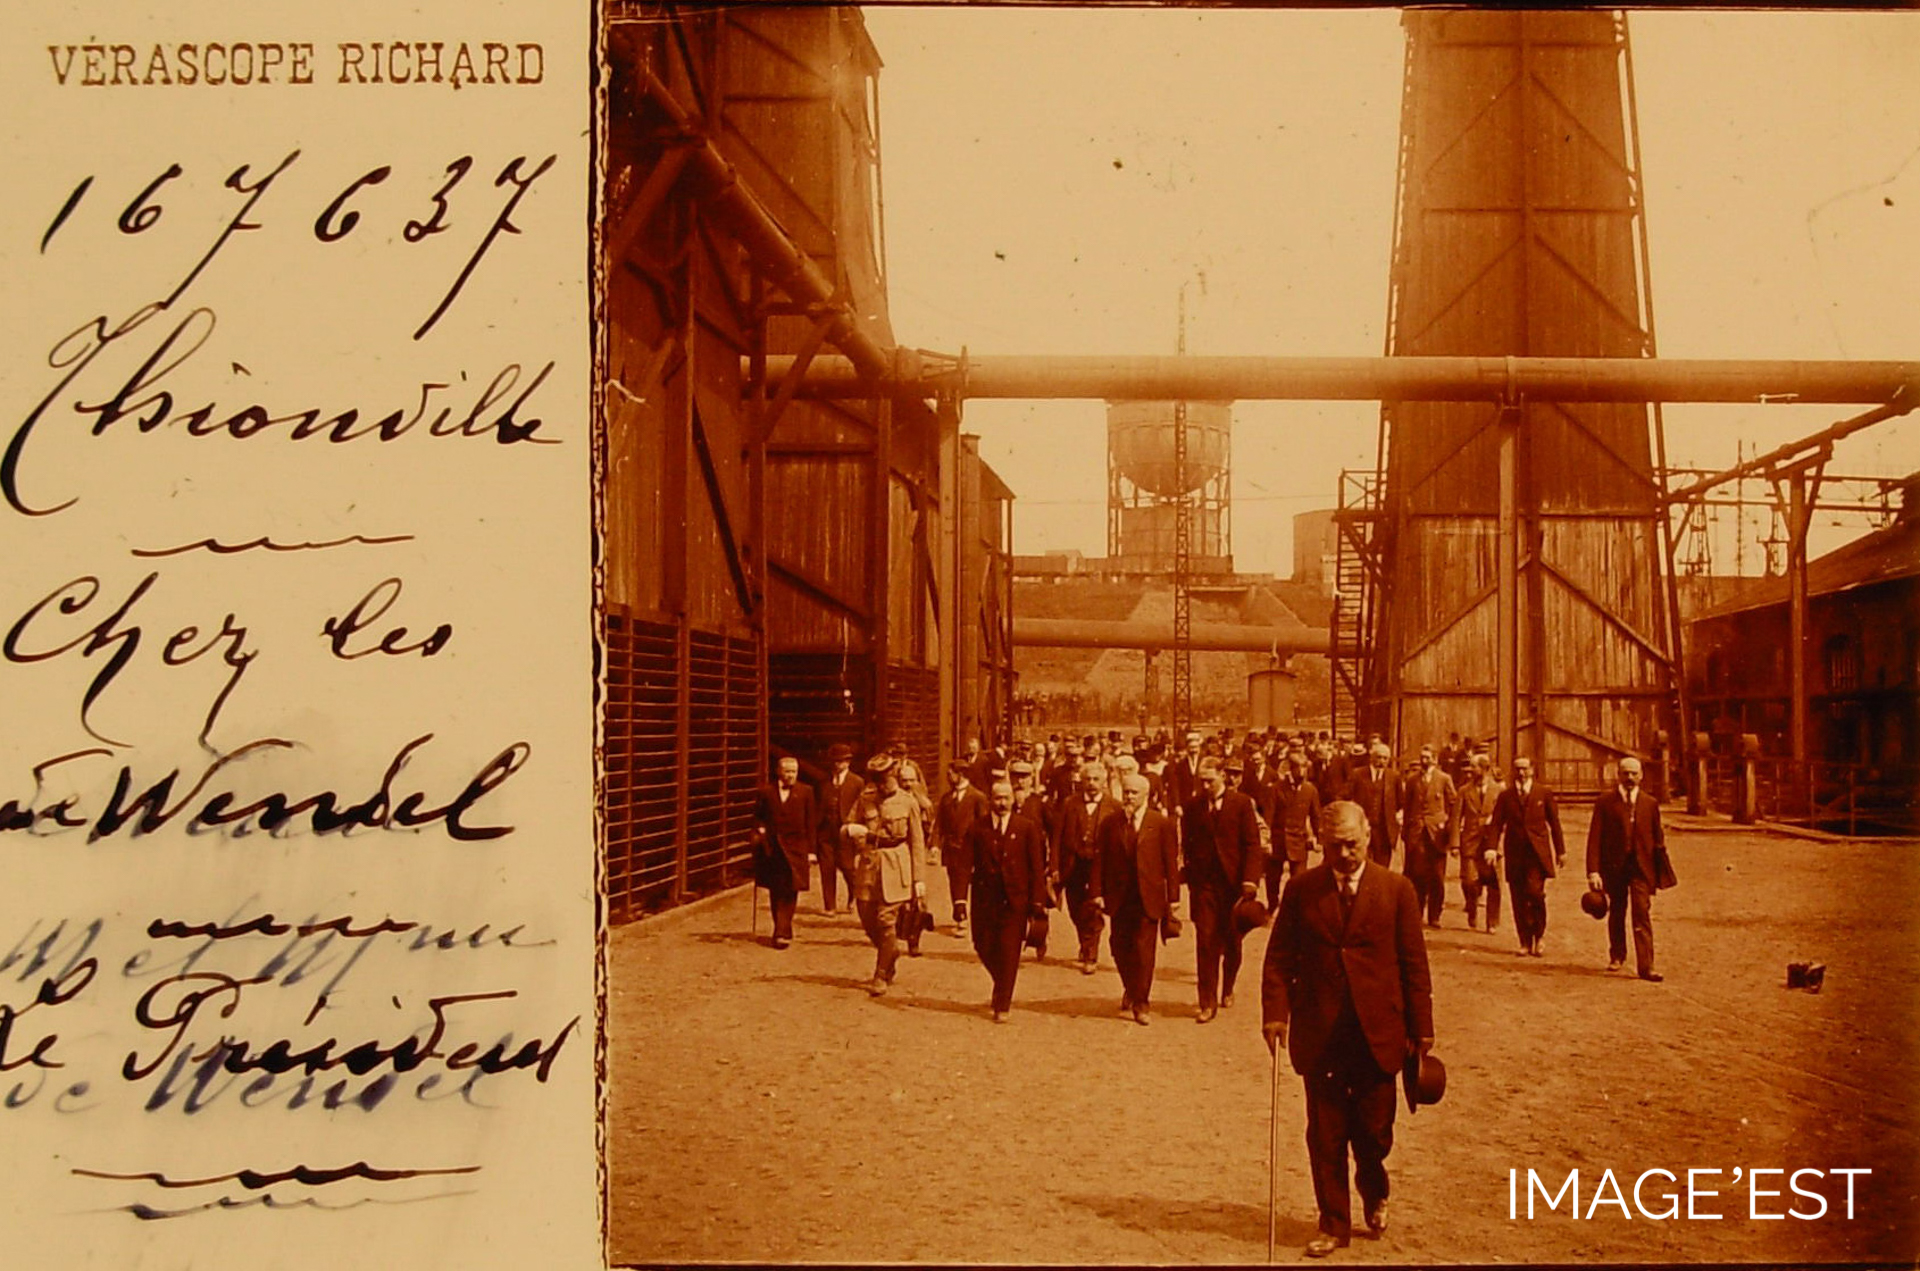 VÉRASCOPE RICHARD
167637
Thionville
Chez les
de Wendel
M et Mme
Le Président
de Wendel
IMAGE'EST